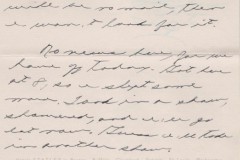 write be no mail, then
I won't look for it.
No news here, for we
have off today. Got here
at 8, so I slept some
more. Took in a show,
showered, and I'll go
eat now. Guess I'll take
in another show.